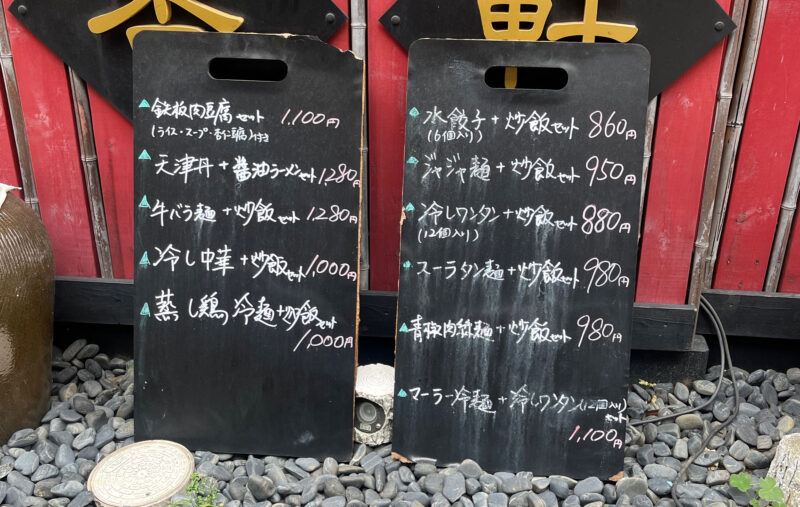 鉄板肉豆腐セット 1,100円
(ライス・スープ・杏仁豆腐)付き
天津丼+醤油ラーメンセット 1,280円
牛バラ麺+炒飯セット 1,280円
冷し中華+炒飯セット 1,000円
蒸し鶏冷麺+炒飯セット
1,000円
水餃子+炒飯セット 860円
(6個入り)
ジャジャ麺+炒飯セット 950円
冷しワンタン+炒飯セット 880円
(12個入り)
スーラタン麺+炒飯セット 980円
青椒肉絲麺+炒飯セット 980円
マーラー冷麺+冷しワンタン(12個入り)
セット
1,100円